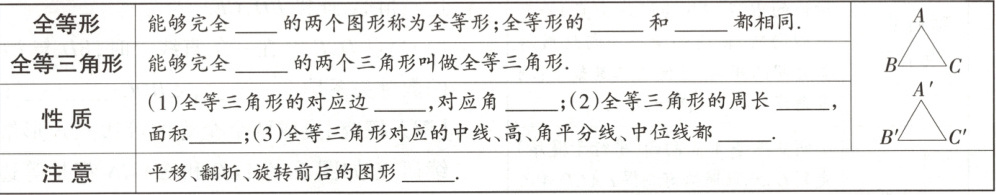 全等形
能够完全 ____ 的两个图形称为全等形;全等形的 _____ 和 _____ 都相同.
全等三角形
能够完全 _____ 的两个三角形叫做全等三角形.
性质
(1)全等三角形的对应边 _____,对应角 _____;(2)全等三角形的周长 _____,
面积_____;(3)全等三角形对应的中线、高、角平分线、中位线都 _____.
注意
平移、翻折、旋转前后的图形 _____.
A
B
C
A′
B′
C′